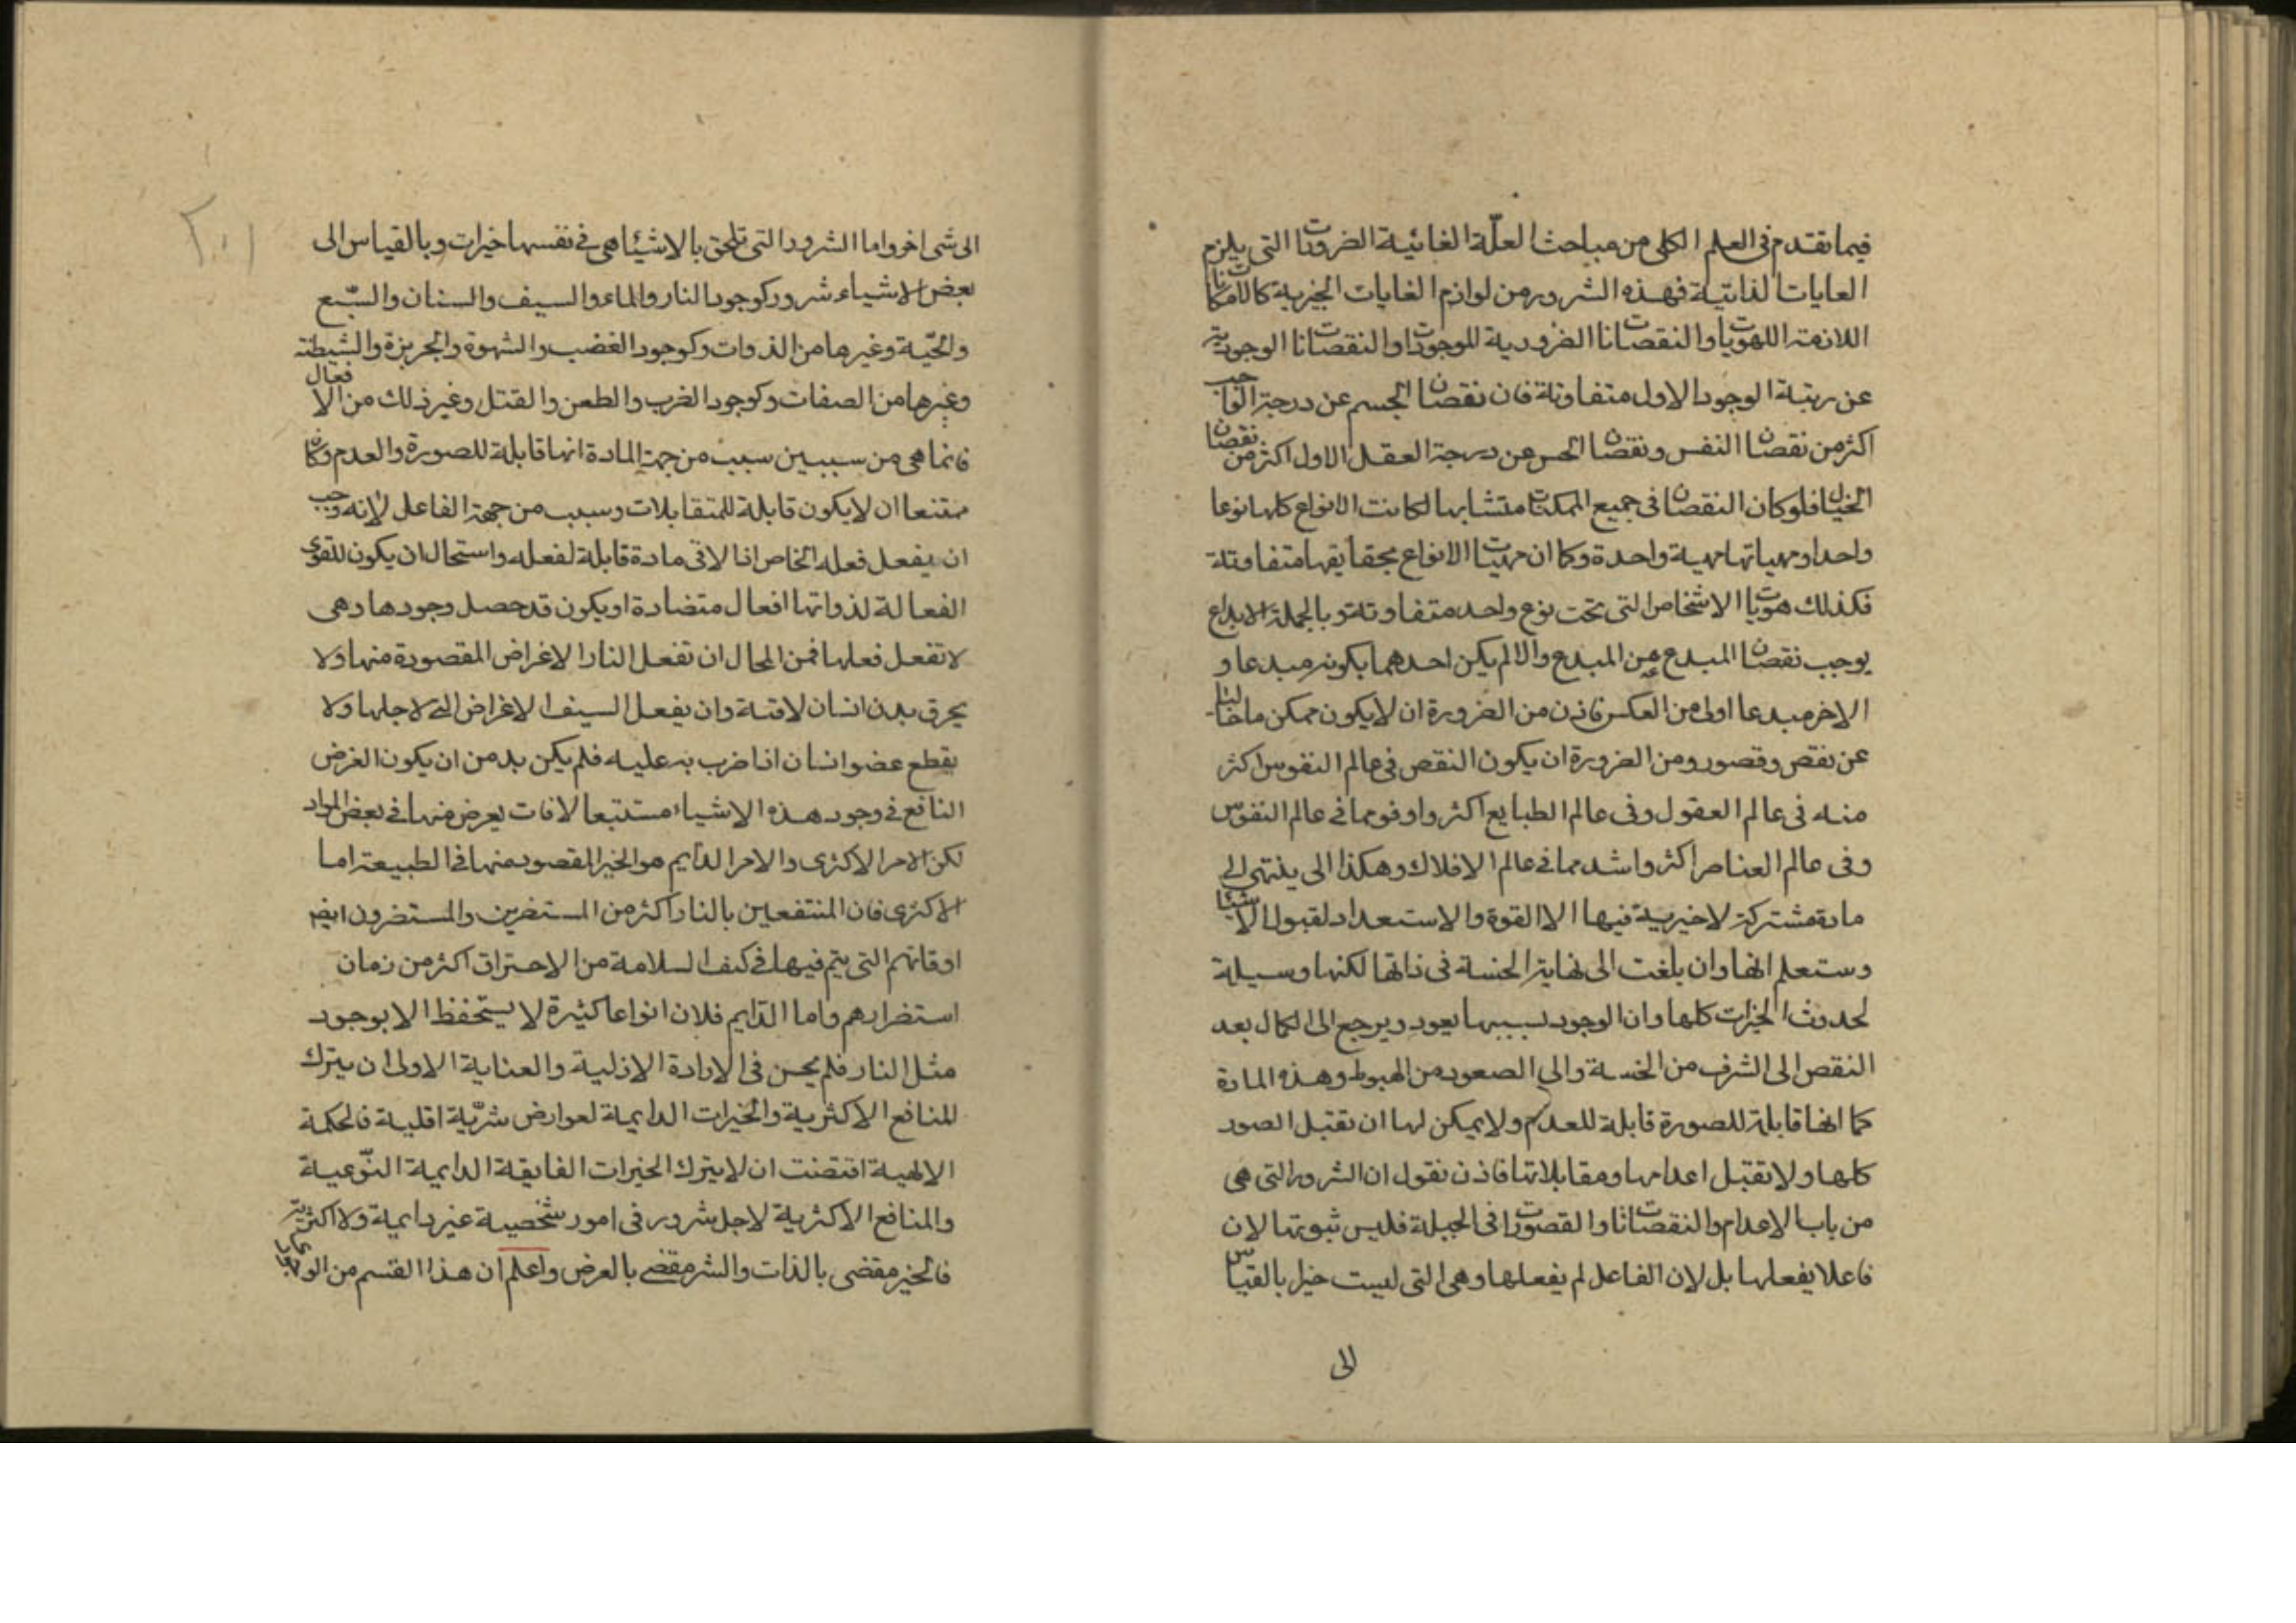 فيما تقدم في العلم الكلي من مباحث العلّة الغائية الضروريات التي يلزم
الغايات الذاتية فهذه الشرور من لوازم الغايات الخيرية كالامكانات
اللازمة للهويات والنقصانات الضرورية للموجودات والنقصانات الوجودية
عن رتبة الوجود الاول متفاوتة فان نقصان الجسم عن درجة الواجب
اكثر من نقصان النفس ونقصان الحس عن درجة العقل الاول اكثر من نقصان
الخيال فلو كان النقصان في جميع الممكنات متشابها لكانت الانواع كلها نوعا
واحدا ومهياتها مهية واحدة وكما ان مهيات الانواع بحقايقها متفاوتة
فكذلك هويات الاشخاص التي تحت نوع واحد متفاوتة وبالجملة الابداع
يوجب نقصان المبدع عن المبدع والا لم يكن احدهما بكونه مبدعا و
الاخر مبدعا اولى من العكس فاذن من الضرورة ان لا يكون ممكن ما خاليا
عن نقص وقصور ومن الضرورة ان يكون النقص في عالم النفوس اكثر
منه في عالم العقول وفي عالم الطبايع اكثر واوفر مما في عالم النفوس
وفي عالم العناصر اكثر واشد مما في عالم الافلاك وهكذا الى ينتهي الى
مادة مشتركة لا خيرية فيها الا القوة والاستعداد لقبول الاشيا
وستعلم انها وان بلغت الى نهاية الخسة في ذاتها لكنها وسيلة
لحدوث الخيرات كلها وان الوجود بسببها يعود ويرجع الى الكمال بعد
النقص الى الشرف من الخسة والي الصعود من الهبوط وهذه المادة
كما انها قابلة للصورة قابلة للعدم ولا يمكن لها ان تقبل الصور
كلها ولا تقبل اعدامها ومقابلاتها فاذن نقول ان الشرور التي هي
من باب الاعدام والنقصانات والقصورات في الجبلة فليس ثبوتها لان
فاعلا يفعلها بل لان الفاعل لم يفعلها وهي التي ليست خيرا بالقياس
الى
الى شي اخر واما الشرور التي تلحق بالاشيا هي في نفسها خيرات وبالقياس الى
بعض الاشياء شرور كوجود النار والماء والسيف والسنان والسّبع
والحيّة وغيرها من الذوات وكوجود الغضب والشهوة والجربزة والشيطنة
وغيرها من الصفات وكوجود الضرب والطعن والقتل وغير ذلك من الافعال
فانما هي من سببين سبب من جهة المادة انها قابلة للصورة والعدم وكان
ممتنعا ان لا يكون قابلة للمتقابلات وسبب من جهة الفاعل لانه وجب
ان يفعل فعله الخاص اذا لاقى مادة قابلة لفعله واستحال ان يكون للقوى
الفعالة لذواتها افعال متضادة او يكون قد حصل وجودها وهي
لا تفعل فعلها فمن المحال ان تفعل النار الاغراض المقصودة منها ولا
يحرق بدن انسان لاقته وان يفعل السيف الاغراض التي لاجلها ولا
يقطع عضو انسان اذا ضرب به عليه فلم يكن بد من ان يكون الغرض
النافع في وجود هذه الاشياء مستتبعا لافات يعرض منها في بعض المواد
لكن الامر الاكثري والامر الدايم هو الخير المقصود منها في الطبيعة اما
الاكثري فان المنتفعين بالنار اكثر من المستضرين والمستضرون ايضا
اوقاتهم التي يتم فيها في كنف السلامة من الاحتراق اكثر من زمان
استضرارهم واما الدّايم فلان انواعا كثيرة لا يستحفظ الا بوجود
مثل النار فلم يحسن في الارادة الازلية والعناية الاولى ان يترك
المنافع الاكثرية والخيرات الدايمة لعوارض شرّية اقلية فالحكمة
الالهية اقتضت ان لا يترك الخيرات الفايقة الدايمة النّوعية
والمنافع الاكثرية لاجل شرور في امور شخصية غير دايمة ولا اكثرية
فالخير مقضى بالذات والشر مقضي بالعرض واعلم ان هذا القسم من الوجود